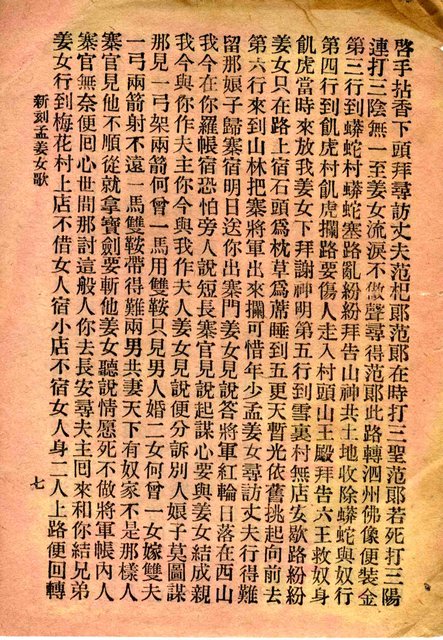 啓手拈香下頭拜尋訪丈夫范杞郎范郎在時打三聖范郎若死打三陽
連打三陰無一至姜女流淚不做聲尋得范郎此路轉泗州佛像便裝金
第三行到蟒蛇村蟒蛇塞路亂紛紛拜告山神共土地收除蟒蛇與奴行
第四行到飢虎村飢虎攔路要傷人走入村頭山王殿拜告六王救奴身
飢虎當時來放我姜女下拜謝神明第五行到雪裏村無店安歇路紛紛
姜女只在路上宿石頭爲枕草爲蓆睡到五更天暫光依舊挑起向前去
第六行來到山林把寨將軍出來攔可惜年少孟姜女尋訪丈夫行得難
留那娘子歸寨宿明日送你出寨門姜女見說答將軍紅輪日落在西山
我今在你羅帳宿恐怕旁人說短長寨官見說起謀心要與姜女結成親
我今與你作夫主你今與我作夫人姜女見說便分訴別人娘子莫圖謀
那見一弓架兩箭何曾一馬用雙鞍只見男人婚二女何曾一女嫁雙夫
一弓兩箭射不遠一馬雙鞍帶得難兩男共妻天下有奴家不是那樣人
寨官見他不順從就拿寶劍要斬他姜女聽說情愿死不做將軍帳內人
寨官無奈便回心世間那討這般人你去長安尋夫主回來和你結兄弟
姜女行到梅花村上店不借女人宿小店不宿女人身二人上路便回轉
新刻孟姜女歌
七